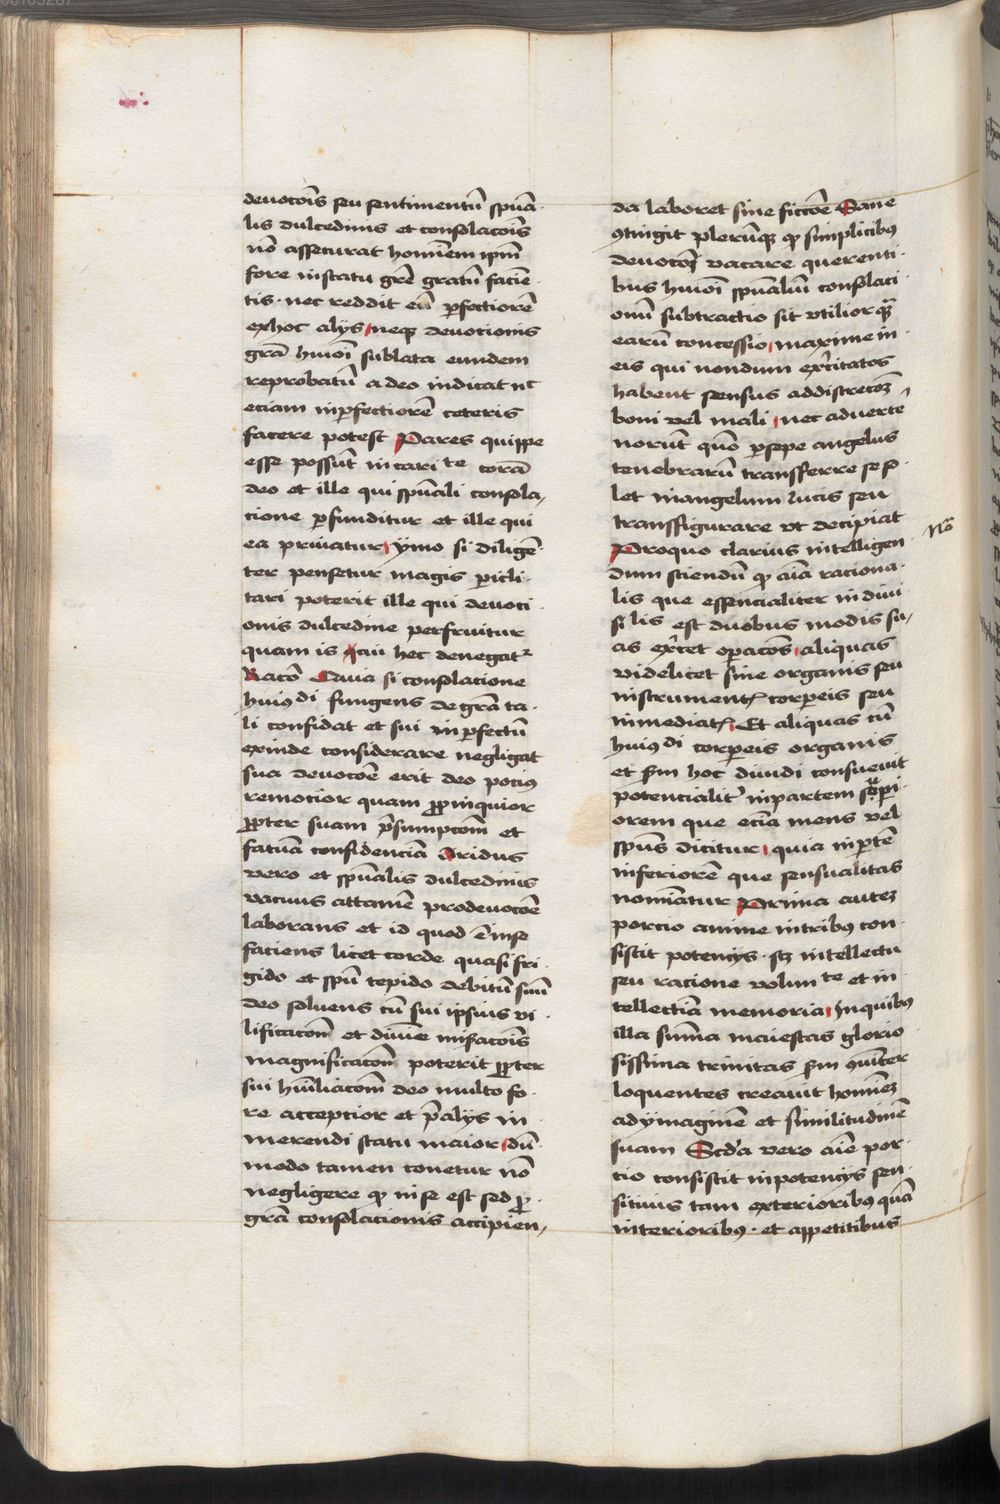 deuotōis seu sentimentū spūa
lis dulcedinis et consolacōis
nō asseturat hominem ipm̄
fore instatu grē gratū facie
tis · nec reddit eū perfectiorē
exhoc alijs neque deuotionis
grā huiōi sublata eundem
reprobatū a deo indicat nc
eciam inperfectiorē ceteris
facere potest Pares quippe
esse possūt in cari te corā
deo et ille qui spūali consola
cione perfunditur et ille qui
ea priuatur ymo si diligē
ter pensetur magis pericli
tari poterit ille qui deuoci
onis dulcedine perfruitur
quam is cui hec denegatr
Racō Quia si consolacione
huiusdi fungens de grā ta
li confidat et sui inperfectū
exinde considerare negligat
sua deuocōe erit deo pocius
remotior quam propinquior
propter suam p̄sumpcom̄ et
fatuā confidenciā Aridus
vero et spūalis dulcedinis
vacuus attamē prodeuocōe
laborans et id quod ē inse
faciens licet corde quasi fri
gido et spū tepido debitū suū
deo soluens cū sui ipsius vi
lificacom̄ et diuīe mis̄acōis
magnificacom̄ poterit propter
sui hūiliacom̄ deo multo fo
re acceptior et p̄alijs in
merendi statu maior dū
modo tamen conetur nō
negligere qp inse est sed pro
grā consolacionis accipien
da laboret sine ficcōe Sane
9tingit plerūque qp simplicibus
deuocōi vacare querenti
bus huiōi spūaliū consolaci
onū subtractio sit vtilior qua
earū concessio maxime in
eis qui nondum exercitatos
habent sensus addiscrecōez
boni vel mali nec aduerte
norūt quō persepe angelus
tenebrarū transferre se so
let inangelum lucis seu
transfigurare vt decipiat
Nō
Proquo clarius intelligen
dum sciendū qp aīa raciona
lis que essencialiter indiui
si lis est duobus modis su
as exercet operacōes aliquas
videlicet sine organis seu
instrumentis corporeis seu
inmediatis Et aliquas cū
huiusdi corporeis organis
et sm̄ hoc diuidi consueuit
potencialiter inpartem superi
orem que eciā mens vel
spūs dicitur quia in partē
inferiorē que sensualitas
nominatur Prima autez
porcio anime intribus con
sistit potencijs · scz intellectu
seu ratione volun te et in
tellectiā memoria Inquibus
illa summa maiestas glorio
sissima trinitas sm̄ 9muniter
loquentes creauit hominez
adymaginē et similitudinē
suam Secda vero aīe por
tio consistit inpotencijs sen
sitiuis tam exterioribus quā
interioribus · et appetitibus